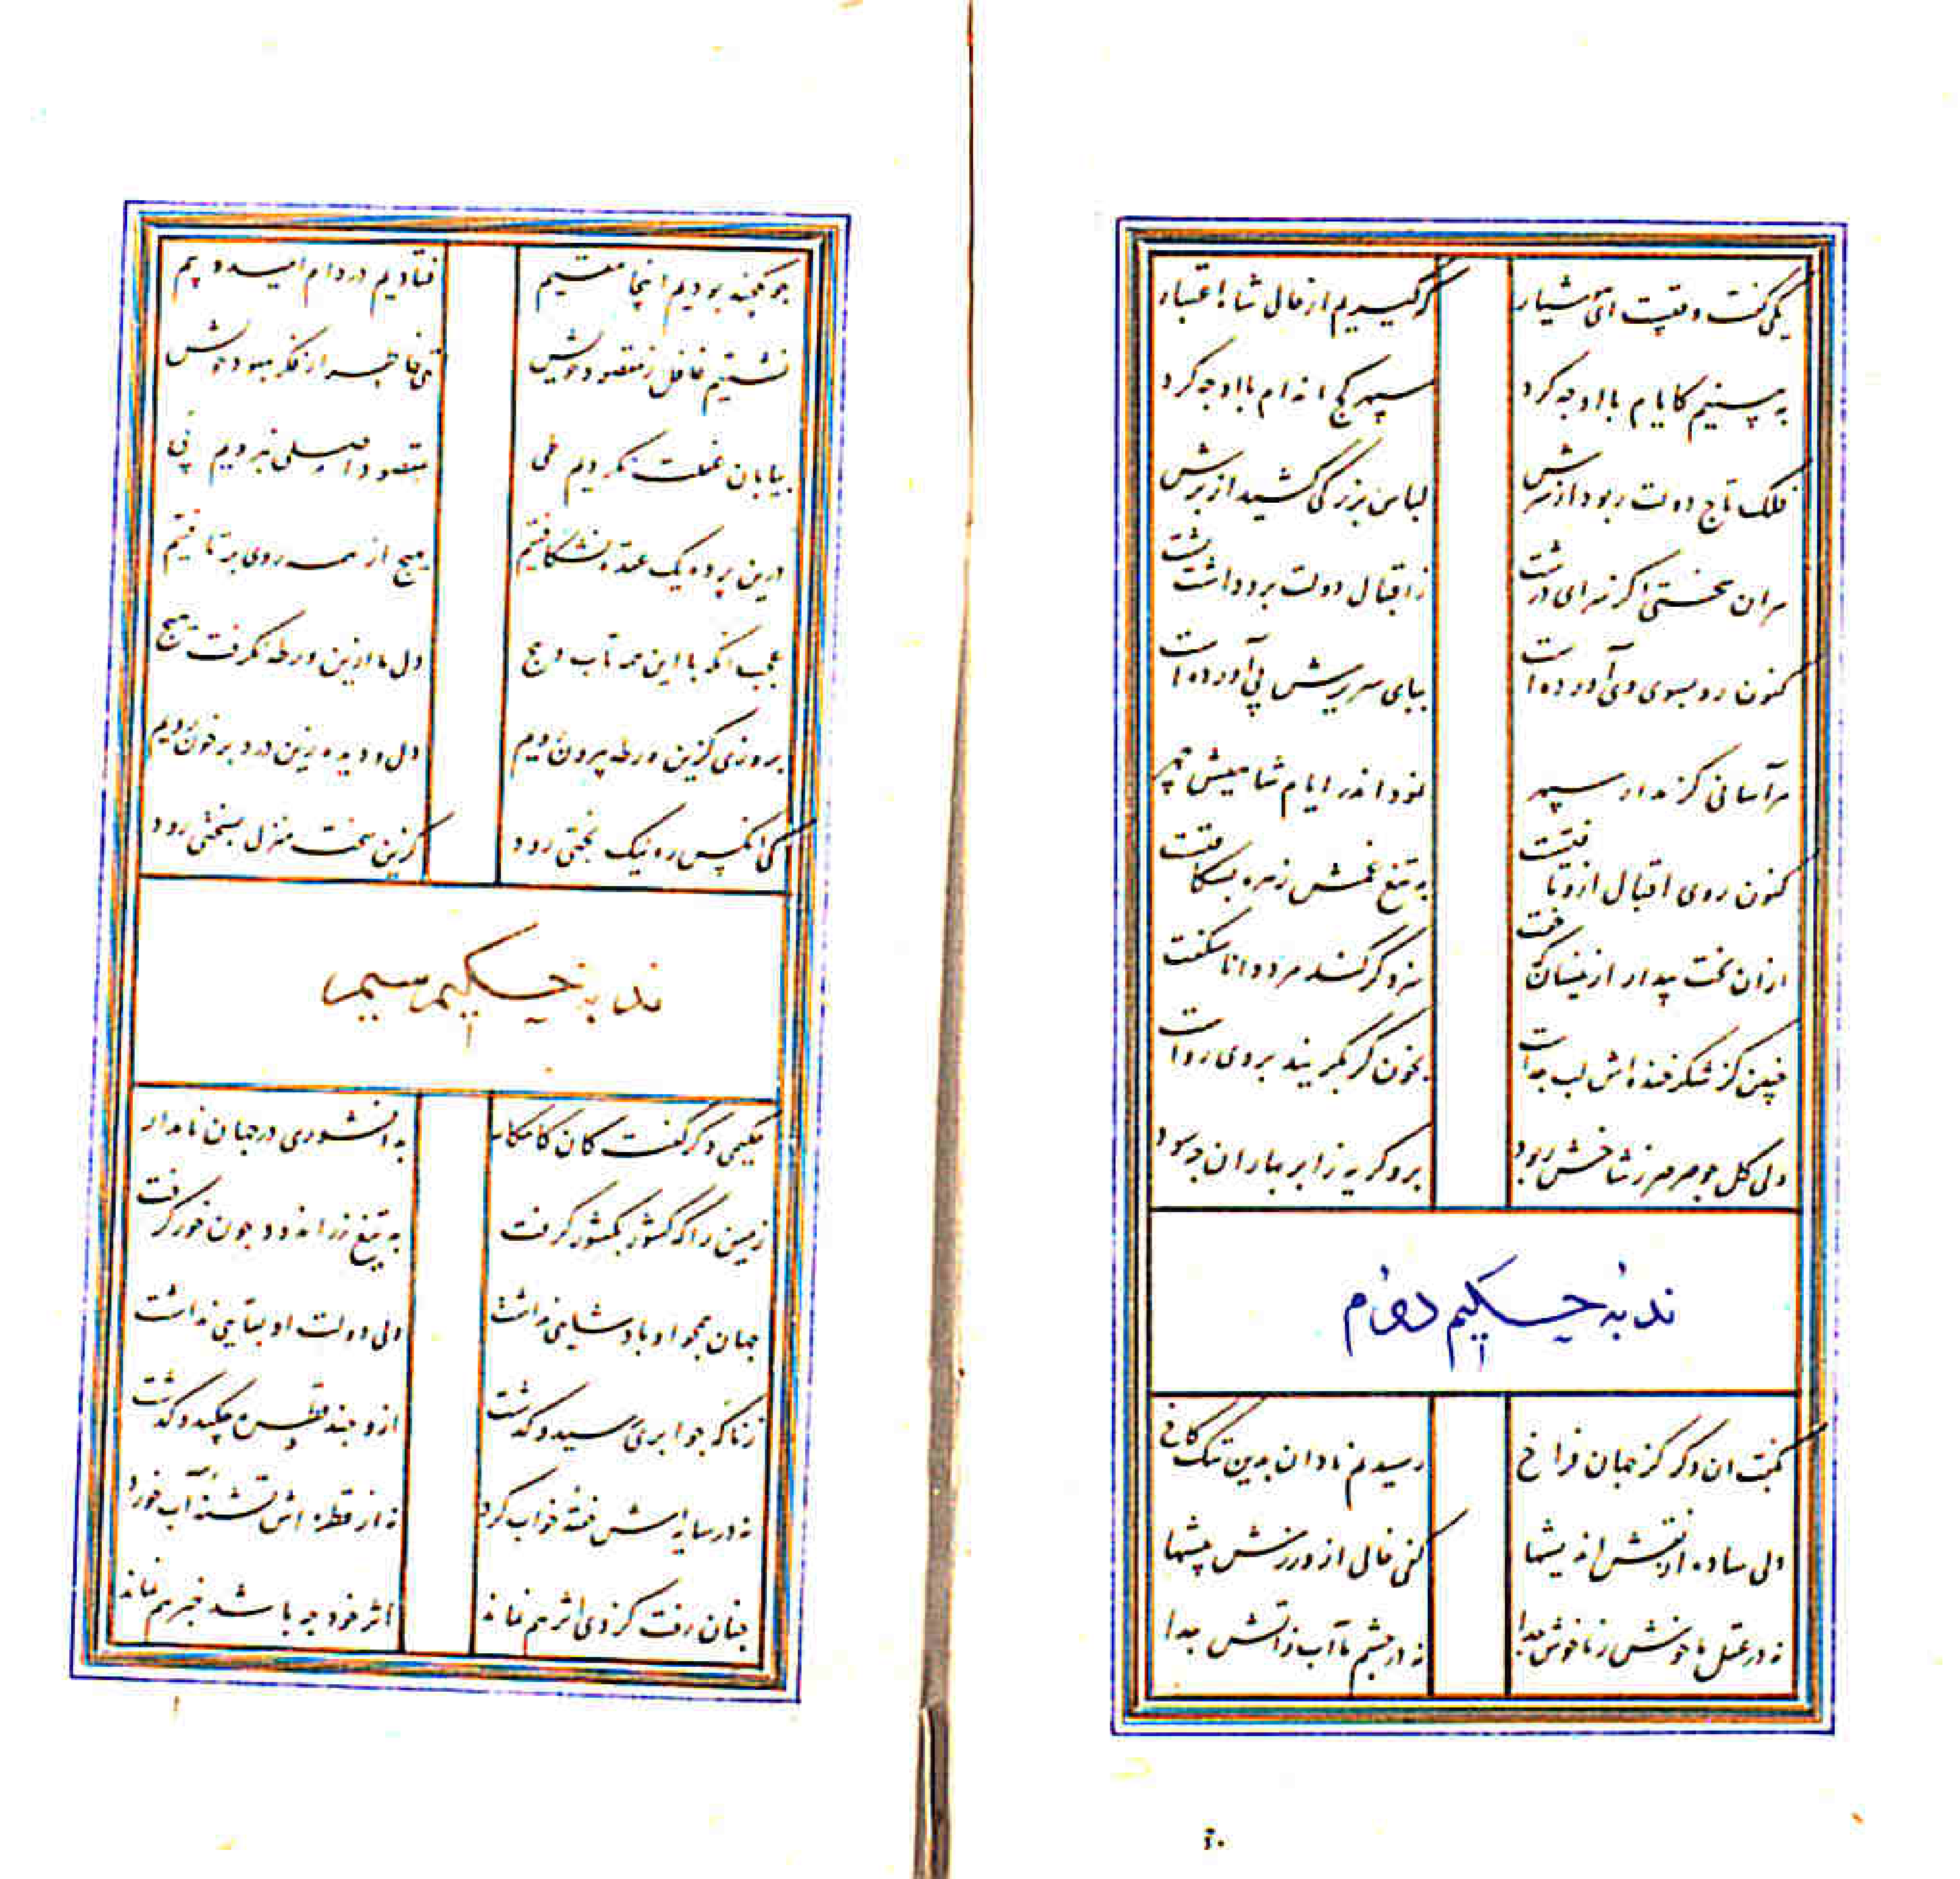 یکی گفت وقتست ای هشیار که گیریم از حال شاه اعتبار
ببینیم کایام با او چه کرد سپهر کج اندام با او چه کرد
فلک تاج دولت ربود از سرش لباس بزرگی کشید از برش
سران تختی اگر سرای درشت ز اقبال دولت برو داشت پشت
کنون رو بسوی وی آورده است بپای سریرش پی آورده است
هر آسانی کز مدار سپهر نبود اندر ایام شاهیش چهر
کنون روی اقبال ازو تافتست به تیغ غمش زهره بشکافتست
ازان تخت بیدار ازینسان که خفت نه گر کند مرد دانا شکفت
چنین کز شکر خنده اش لب جداست بخون گر بگریند بروی رواست
ولی گل چو صرصر ز شاخش ربود برو گریه ز ابر بهاران چه سود
ندبه حکیم دوم
بگفت ان دگر کز جهان فراخ رسیدیم نادان بدین تنگ کاخ
دلی ساده از نقش اندیشها کفی خالی از ورزش پیشها
نه در عقل ما خوش ز ناخوش جدا نه در چشم ما آب ز آتش جدا
۶۰
چو یکچند بودیم اینجا مقیم فتادیم در دام امید و بیم
نشستیم غافل ز مقصود خویش تهی خاطر از فکر بهبود خویش
بیابان غفلت نکردیم طی بمقصود اصلی نبردیم پی
درین پرده یک عقده نشکافتیم بهیچ از همه روی برتافتیم
عجب انکه با این همه تاب و پیچ دل ما ازین ورطه نگرفت هیچ
بروزی کزین ورطه بیرون رویم دل و دیده زین درد پر خون رویم
کی آنکس ره نیک بختی رود کزین سخت منزل بسختی رود
ندبه حکیم سیم
حکیمی دگر گفت کان کامکار به دانشوری در جهان نامدار
زمین را که کشور بکشور گرفت به تیغ زر اندود چون خور گرفت
جهان همچو او پادشاهی نداشت ولی دولت او بقایی نداشت
ز ناگه چو ابری رسید و گذشت ازو چند قطره چکید و گذشت
نه در سایه اش خفته خواب کرد نه از قطره اش تشنه آب خورد
چنان رفت کز وی اثر هم نماند اثر خود چه باشد خبر هم نماند